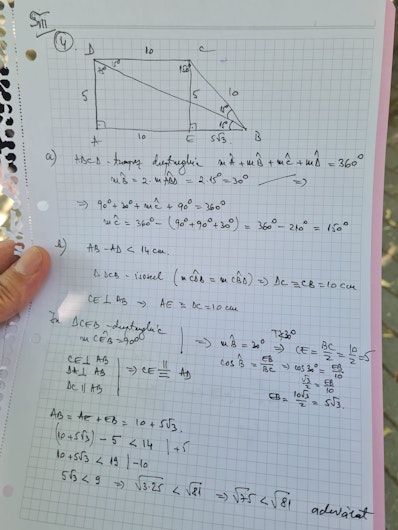 SIII
4.
D 10 C
75° 15° 150°
5 5 10
15°
15°
A 10 E 5√3 B
a) ABCD - trapez dreptunghic mÂ + mB̂ + mĈ + mD̂ = 360°
mB̂ = 2·mABD̂ = 2·15° = 30° ⇒
⇒ 90° + 30° + mĈ + 90° = 360°
mĈ = 360° - (90° + 90° + 30°) = 360° - 210° = 150°
b) AB - AD < 14 cm.
Δ DCB - isoscel (mCDB̂ = mCBD̂) ⇒ DC ≡ CB = 10 cm
CE ⊥ AB ⇒ AE ≡ DC = 10 cm
În ΔCEB - dreptunghic
mCEB̂ = 90° ⇒ mB̂ = 30° T∢30° ⇒ CE = BC/2 = 10/2 = 5
cos B̂ = EB/BC ⇒ cos 30° = EB/10
√3/2 = EB/10
EB = 10√3/2 = 5√3.
CE ⊥ AB
DA ⊥ AB
DC ∥ AB
⇒ CE ∥ ≡ AD
AB = AE + EB = 10 + 5√3.
(10 + 5√3) - 5 < 14 | +5
10 + 5√3 < 19 | -10
5√3 < 9 ⇒ √3·25 < √81 ⇒ √75 < √81
adevărat